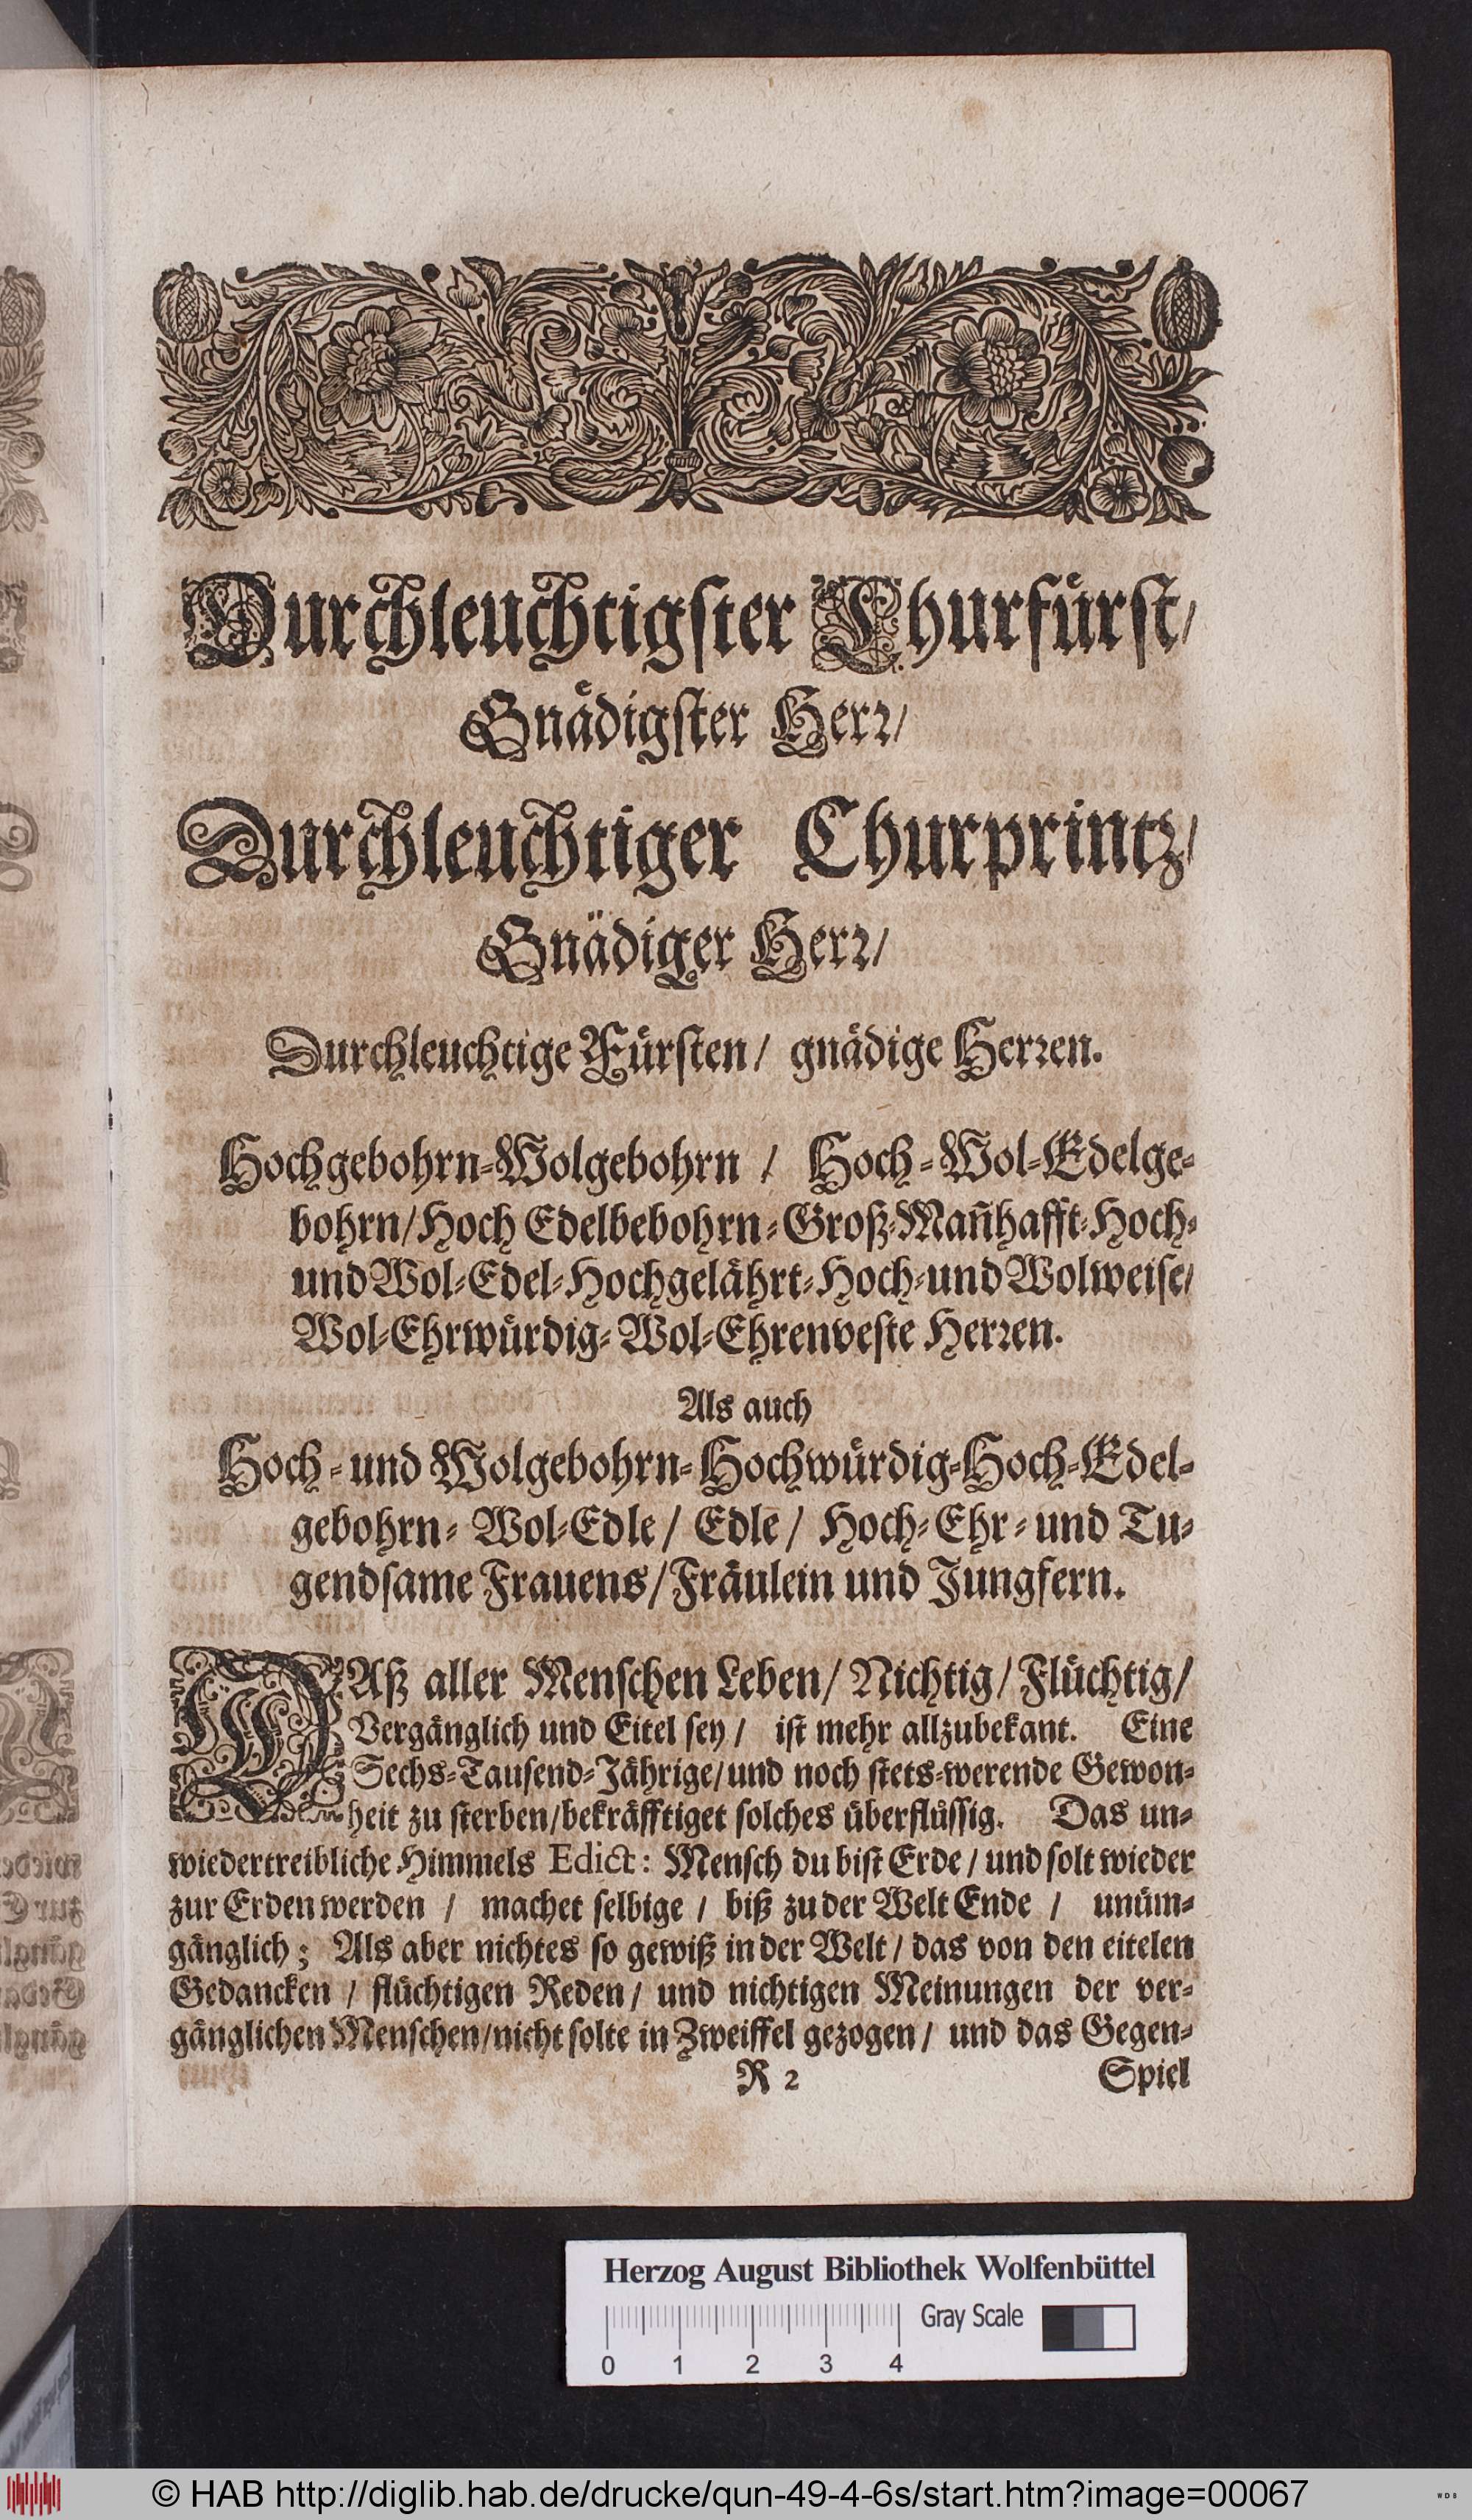 Durchleuchtigster Churfürst/
Gnädigster Herꝛ/
Durchleuchtiger Churprintz/
Gnädiger Herꝛ/
Durchleuchtige Fürsten/ gnädige Herꝛen.
Hochgebohrn-Wolgebohrn / Hoch-Wol-Edelge-
bohrn/Hoch Edelbebohrn-Groß-Mañhafft-Hoch-
und Wol-Edel-Hochgelährt-Hoch-und Wolweise/
Wol-Ehrwürdig-Wol-Ehrenveste Herꝛen.
Als auch
Hoch-und Wolgebohrn-Hochwürdig-Hoch-Edel-
gebohrn-Wol-Edle/ Edle/ Hoch-Ehr-und Tu-
gendsame Frauens/Fräulein und Jungfern.
WAß aller Menschen Leben/ Nichtig/ Flüchtig/
Vergänglich und Eitel sey/ ist mehr allzubekant. Eine
Sechs-Tausend-Jährige/und noch stets-werende Gewon-
heit zu sterben/bekräfftiget solches überflüssig. Das un-
wiedertreibliche Himmels Edict: Mensch du bist Erde/ und solt wieder
zur Erden werden / machet selbige / biß zu der Welt Ende / unüm-
gänglich; Als aber nichtes so gewiß in der Welt/ das von den eitelen
Gedancken / flüchtigen Reden/ und nichtigen Meinungen der ver-
gänglichen Menschen/nicht solte in Zweiffel gezogen/ und das Gegen-
R 2 Spiel
Herzog August Bibliothek Wolfenbüttel
Gray Scale
0 1 2 3 4
© HAB http://diglib.hab.de/drucke/qun-49-4-6s/start.htm?image=00067
WDB